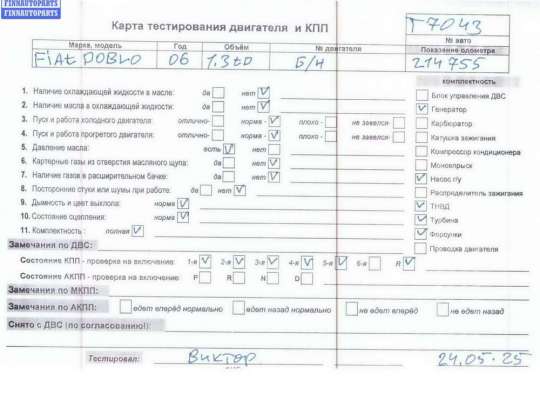 FINNAUTOPARTS
Карта тестирования двигателя и КПП
T7043
№ авто
Марка, модель Год Объём № двигателя Показание одометра
FiAt DOBLO 06 1.3td Б/Н 214755
комплектность
1. Наличие охлаждающей жидкости в масле: да нет
2. Наличие масла в охлаждающей жидкости: да нет
3. Пуск и работа холодного двигателя: отлично- норма - плохо - не завелся-
4. Пуск и работа прогретого двигателя: отлично- норма - плохо - не завелся-
5. Давление масла: есть нет
6. Картерные газы из отверстия масляного щупа: да нет
7. Наличие газов в расширительном бачке: да нет
8. Посторонние стуки или шумы при работе: да нет
9. Дымность и цвет выхлопа: норма
10. Состояние сцепления: норма
11. Комплектность : полная
Блок управления ДВС
Генератор
Карбюратор
Катушка зажигания
Компрессор кондиционера
Моновпрыск
Насос г/у
Распределитель зажигания
ТНВД
Турбина
Форсунки
Проводка двигателя
Замечания по ДВС:
Состояние КПП - проверка на включение: 1-я 2-я 3-я 4-я 5-я 6-я R
Состояние АКПП - проверка на включение P R N D
Замечания по МКПП:
Замечания по АКПП: едет вперёд нормально едет назад нормально не едет вперёд не едет назад
Снято с ДВС (по согласованию!):
Тестировал: Виктор 24.05-25